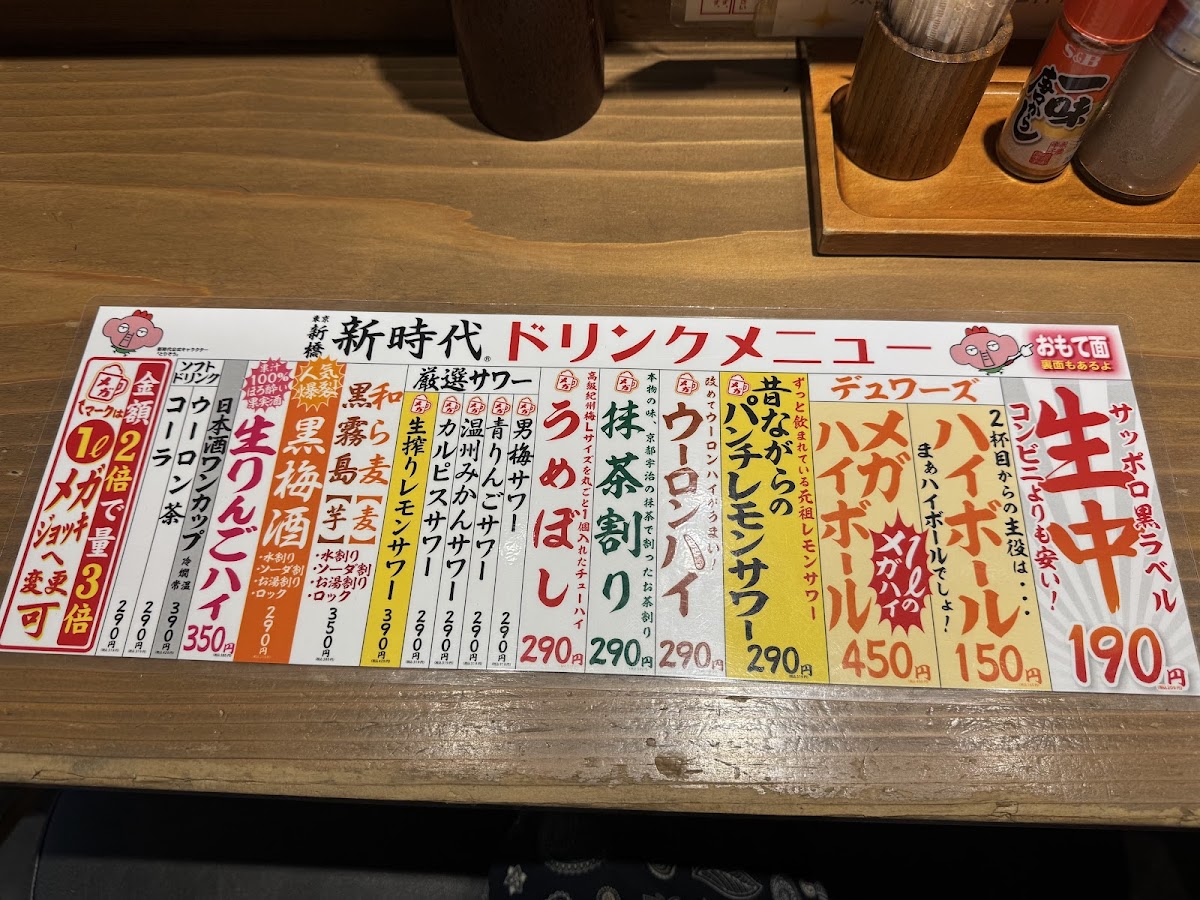 東京
新橋
新時代®
ドリンクメニュー
おもて面
裏面もあるよ
サッポロ黒ラベル
生中
コンビニよりも安い!
190円
デュワーズ
2杯目からの主役は・・・
ハイボール
まぁハイボールでしょ!
150円
メガ
ハイボール
1ℓの
メガハイ
450円
ずっと飲まれている元祖レモンサワー
メガ
昔ながらの
パンチレモンサワー
290円
改めてウーロンハイがうまい
メガ
ウーロンハイ
290円
本物の味、京都宇治の抹茶で割ったお茶割り
メガ
抹茶割り
290円
高級紀州梅Lサイズを丸ごと1個入れたチューハイ
メガ
うめぼし
290円
厳選サワー
男梅サワー
290円
青りんごサワー
290円
温州みかんサワー
290円
カルピスサワー
290円
メガ
生搾りレモンサワー
390円
和ら麦【麦】
黒霧島【芋】
・水割り
・ソーダ割
・お湯割り
・ロック
350円
人気
爆裂
黒梅酒
・水割り
・ソーダ割
・お湯割り
・ロック
290円
果汁
100%
ほろ酔い
果実酒
生りんごハイ
350円
日本酒ワンカップ
冷 燗 常温
390円
ソフト
ドリンク
ウーロン茶
290円
コーラ
290円
メガ
マークは
金額2倍で量3倍
1ℓ
メガ
ジョッキ
へ変更
可
新時代公式キャラクター
S&B
一味
唐がらし